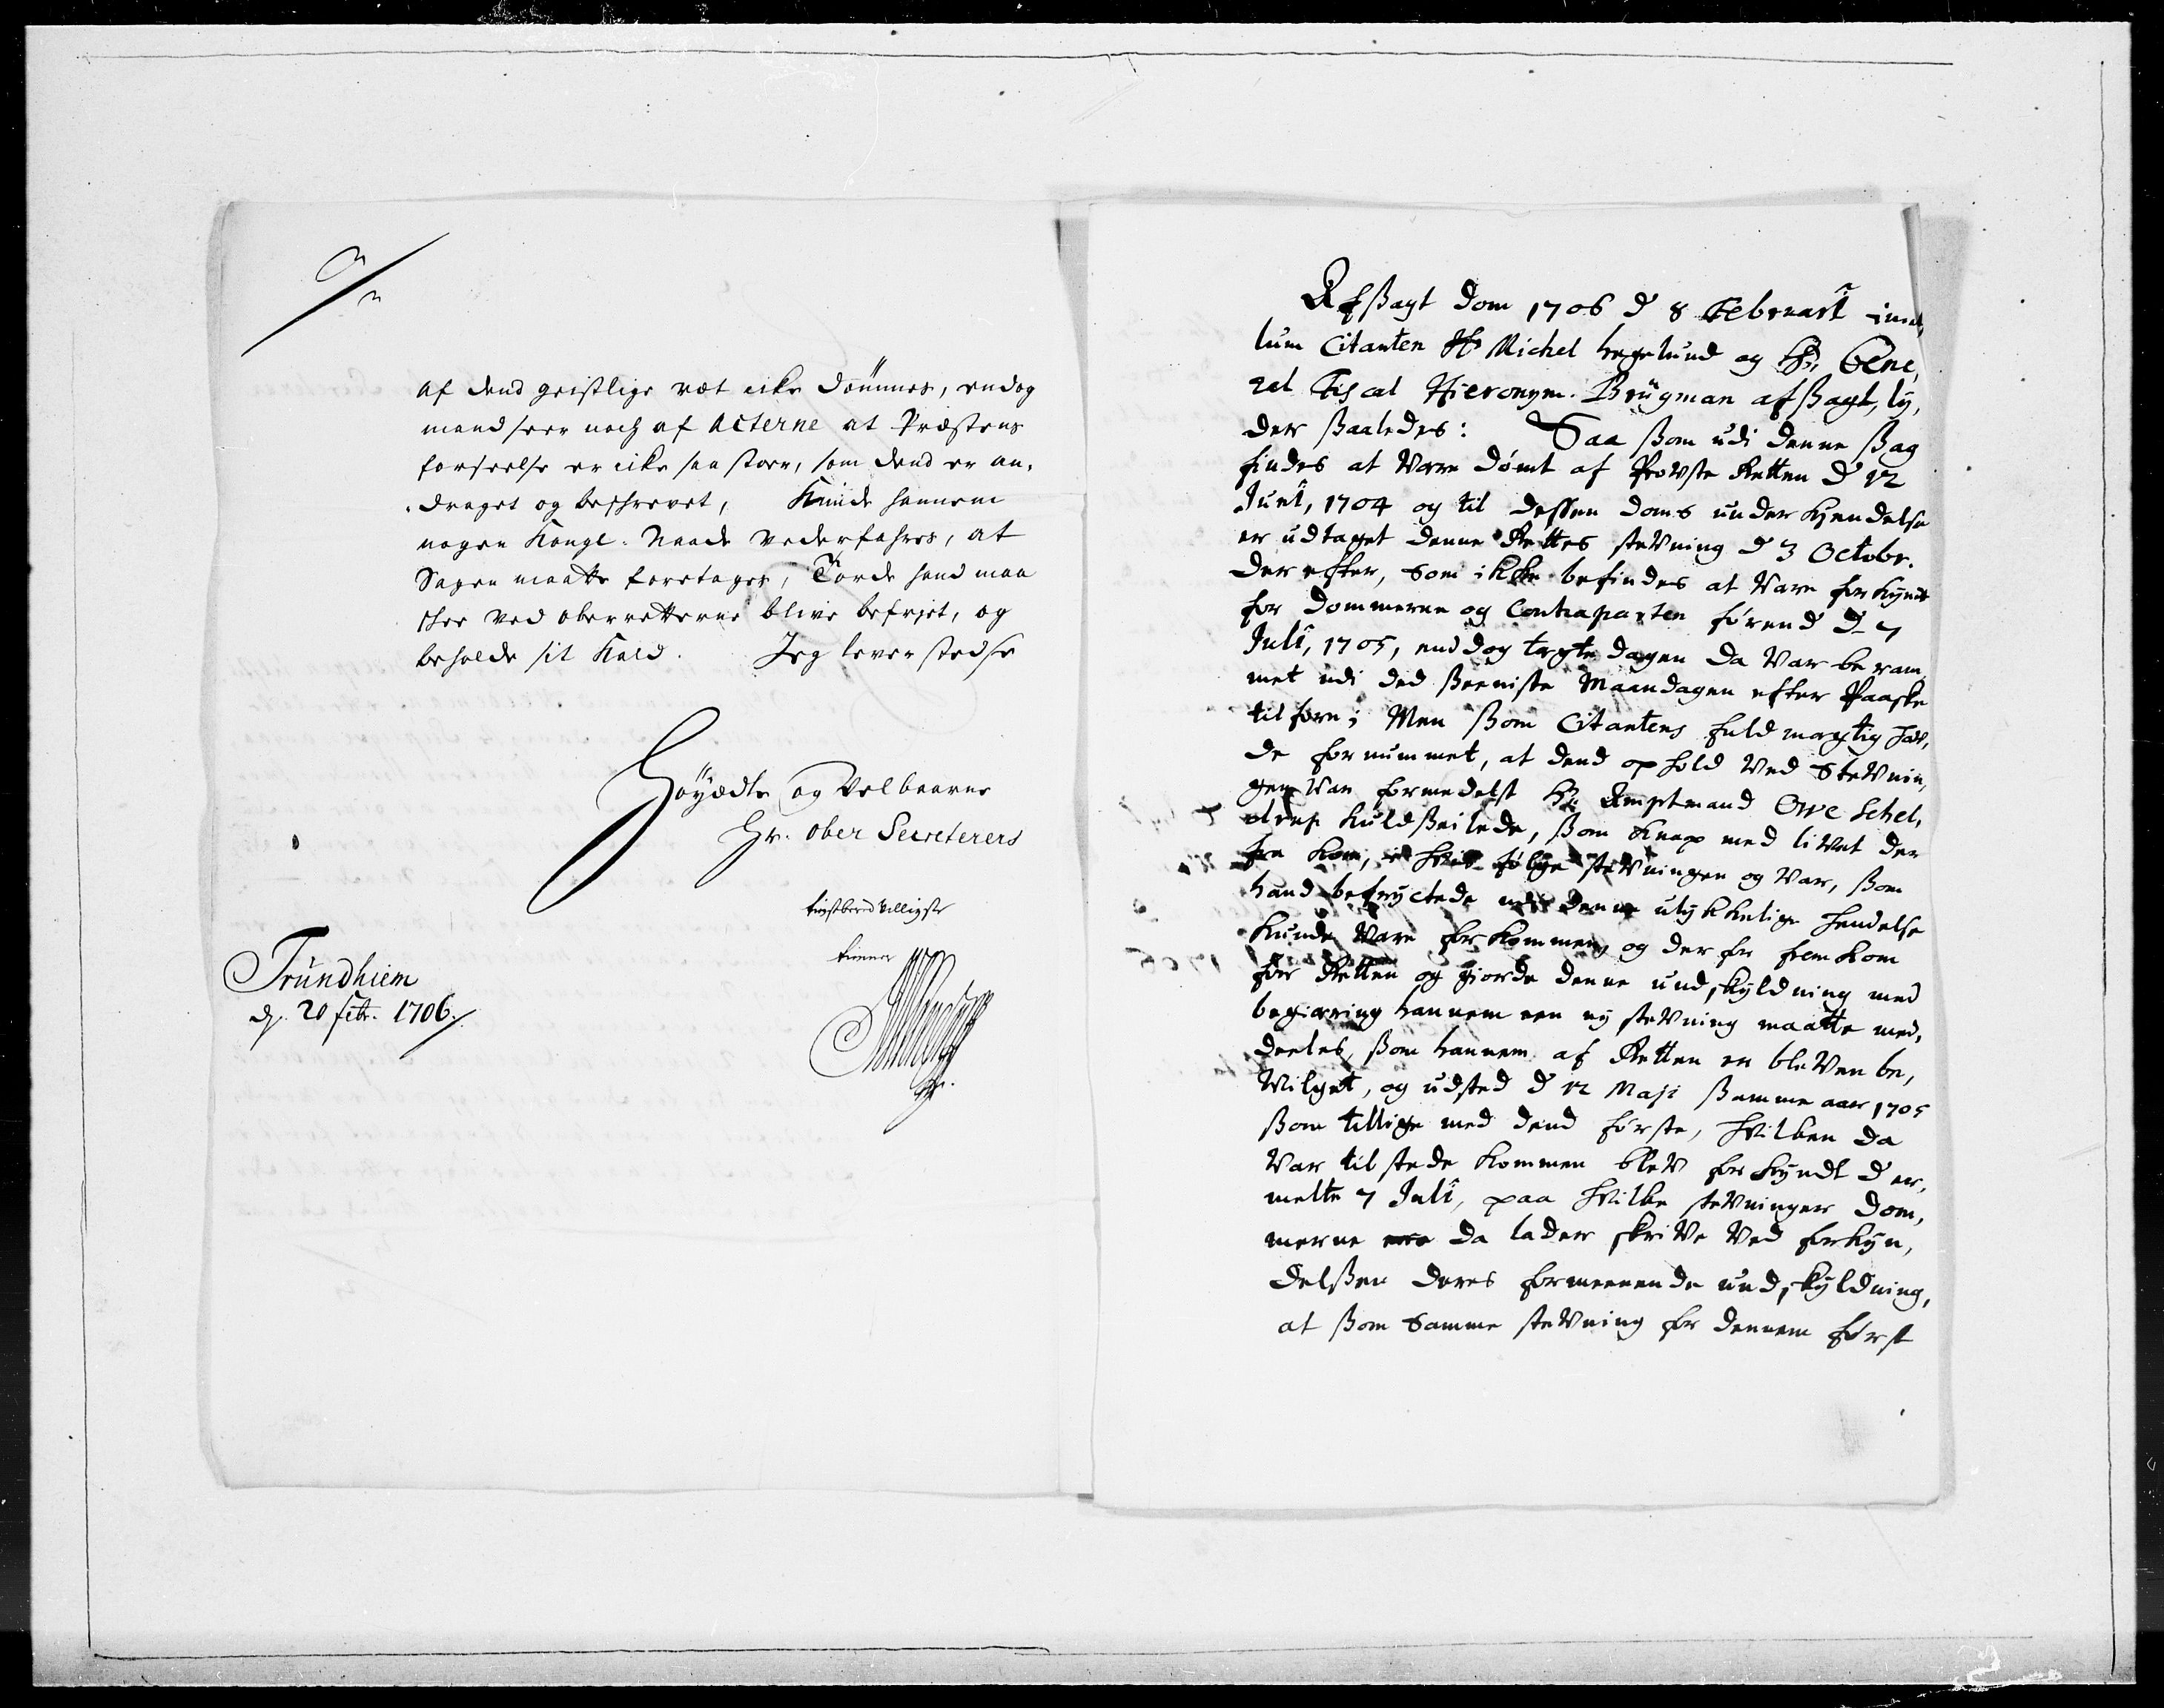 af dend geistlige ræt icke dømmes, endog
mand seer noch af Acterne at Præstens
forseelse er icke saa stoer, som dend er an-
draget og beschrevet, Kunde hannem
nogen Kongl. Naade vederfahres, at
Sagen maatte foretages, Torde hand maa
schee ved oberretterne blive befriet, og
beholde sit Kald. Jeg lever stedse
Høyædle og Velbaarne
Hr. Ober Secreterers
tienstberedvilligste
tienner
Trundhiem
d. 20 febr. 1706.
Afsagt dom 1706 d 8 Februarii imel,
lum Citanten Hr Michel Hegelund og Hr. Gene,
ral Fiscal Hieronym. Brügman afsagt, ly,
der saaledes: Saa som udi denne sag
findes at være dømt af Provste Retten d 12
Junii, 1704 og til dessen doms underkjendelse
er udtaget denne Rettes stevning d 3 Octobr.
der efter, som ikke befindes at være forkynt
for dommerne og Contraparten førend d 7
Julii, 1705, enddog tægte dagen da var beram,
met udi ded seeniste Maandagen efter Paaske
tilforn; Men som Citantens fuldmægtig haf,
de fornummet, at dend ophold ved Stevnin,
gen var formedelst Hr. Amptmand Owe Schel,
drup Kuldseilede, som knap med livet der
fra kom, i hvis følge stevningen og var, som
hand befryctede ved denne ulykkelige hendelse
kunde være forkommen og derfor fremkom
for Retten og giorde denne undskyldning med
begiæring hannem een ny stevning maatte med,
deeles, som hannem af Retten er bleven be,
vilget, og udsted d 12 Maji samme aar 1705
som tillige med dend første, hvilken da
var tilstede kommen blev forkyndt d er,
melte 7 Julii, paa hvilke stevninger dom,
merne da lader skrive ved forkyn,
delsen deres formeenende undskyldning,
at som samme stevning for dennem først